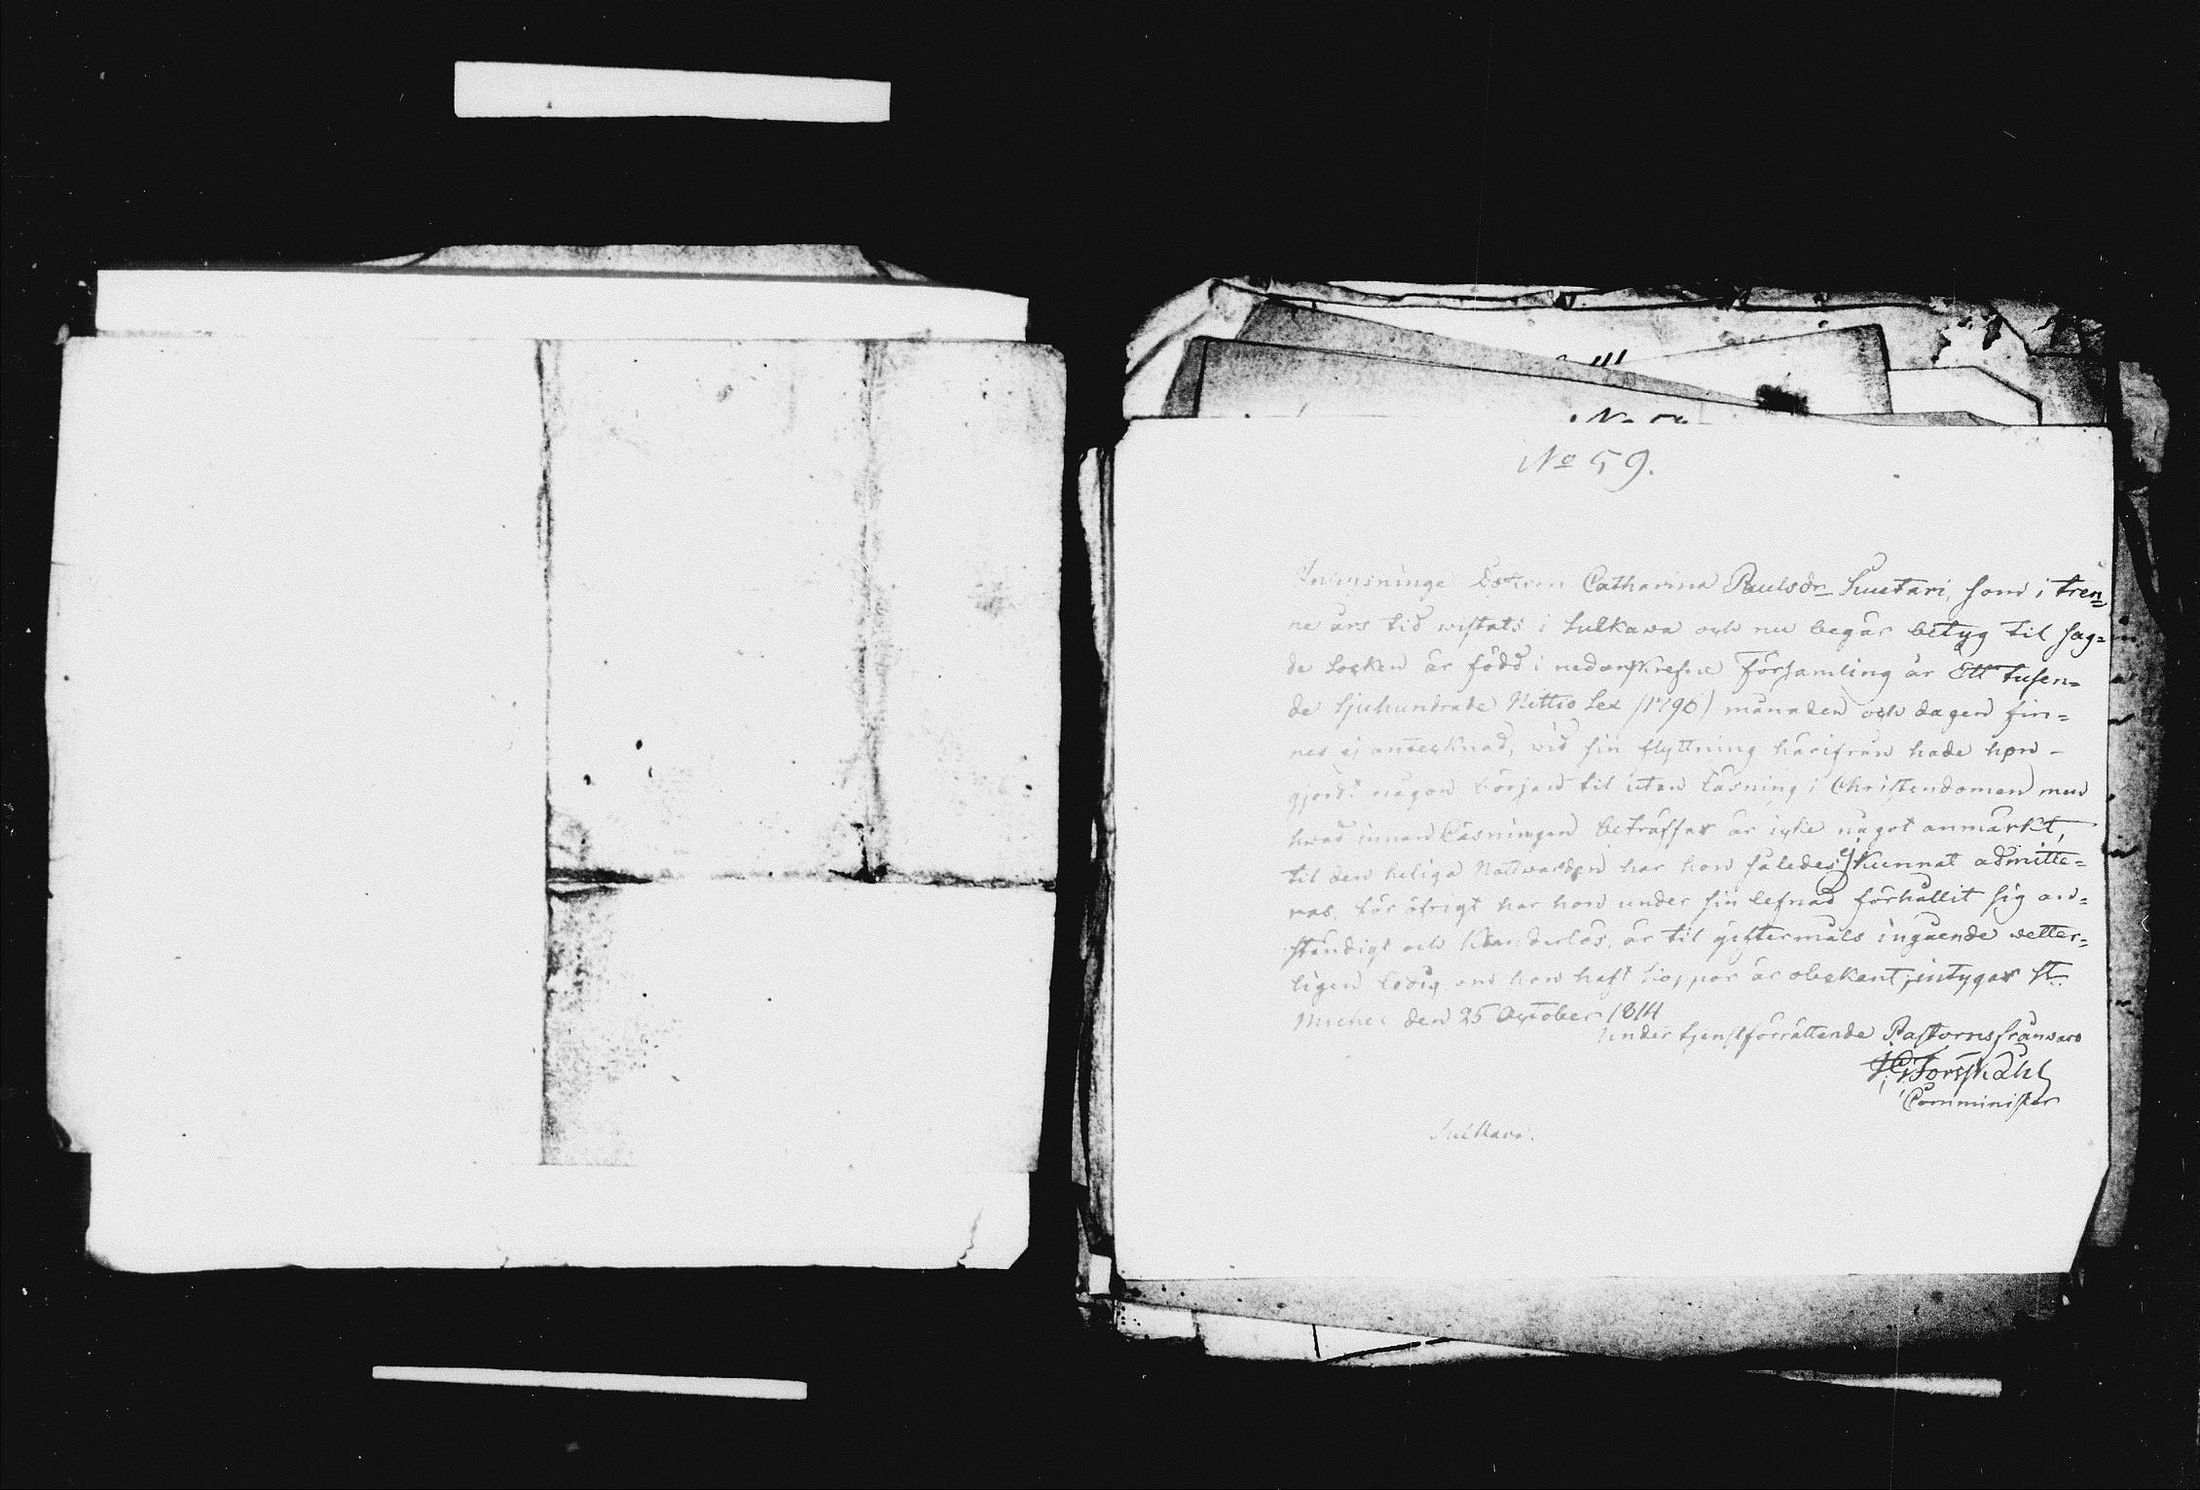 No 59.
Inhysninge Dottren Catharina Paulsdr Suutari, som i tren=
ne års tid wistats i Sulkawa och nu begär betyg til sag=
de Socken är född i nedanskrefne Församling år Ett tusen=
de Sjuhundrade Nittio Sex /1796/ månaden och dagen fin=
nes ej antecknad, wid sin flyttning härifrån hade hon -
gjordt någon början til utan läsning i Christendomen men
hwad innan läsningen beträffar är icke något anmärkt,
til den heliga Nattwarden har hon således ej kunnat admitte=
ras, för öfrigt har hon under sin lefnad förhållit sig an=
ständigt och klanderlös, är til giftermåls ingående wetter=
ligen ledig, om hon haft koppor är obekant, intygar St
Michel den 25 October 1814
Under tjenstförrättande Pastorns frånwaro
Forsskåhl
Comminister
Sulkava.